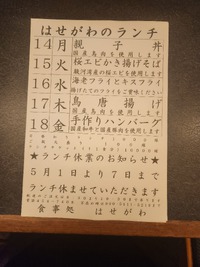 はせがわのランチ
14 月 親子丼
国産鳥肉を使用します
15 火 桜エビかき揚げそば
駿河湾産の桜エビを使用します
16 水 海老フライとキスフライ
揚げたてのフライをご賞味ください
17 木 鳥唐揚げ
国産鳥肉を使用します
18 金 手作りハンバーグ
国産和牛と国産豚肉を使用します
★ランチ休業のお知らせ★
5月1日より7日まで
ランチ休ませていただきます
食事処 はせがわ